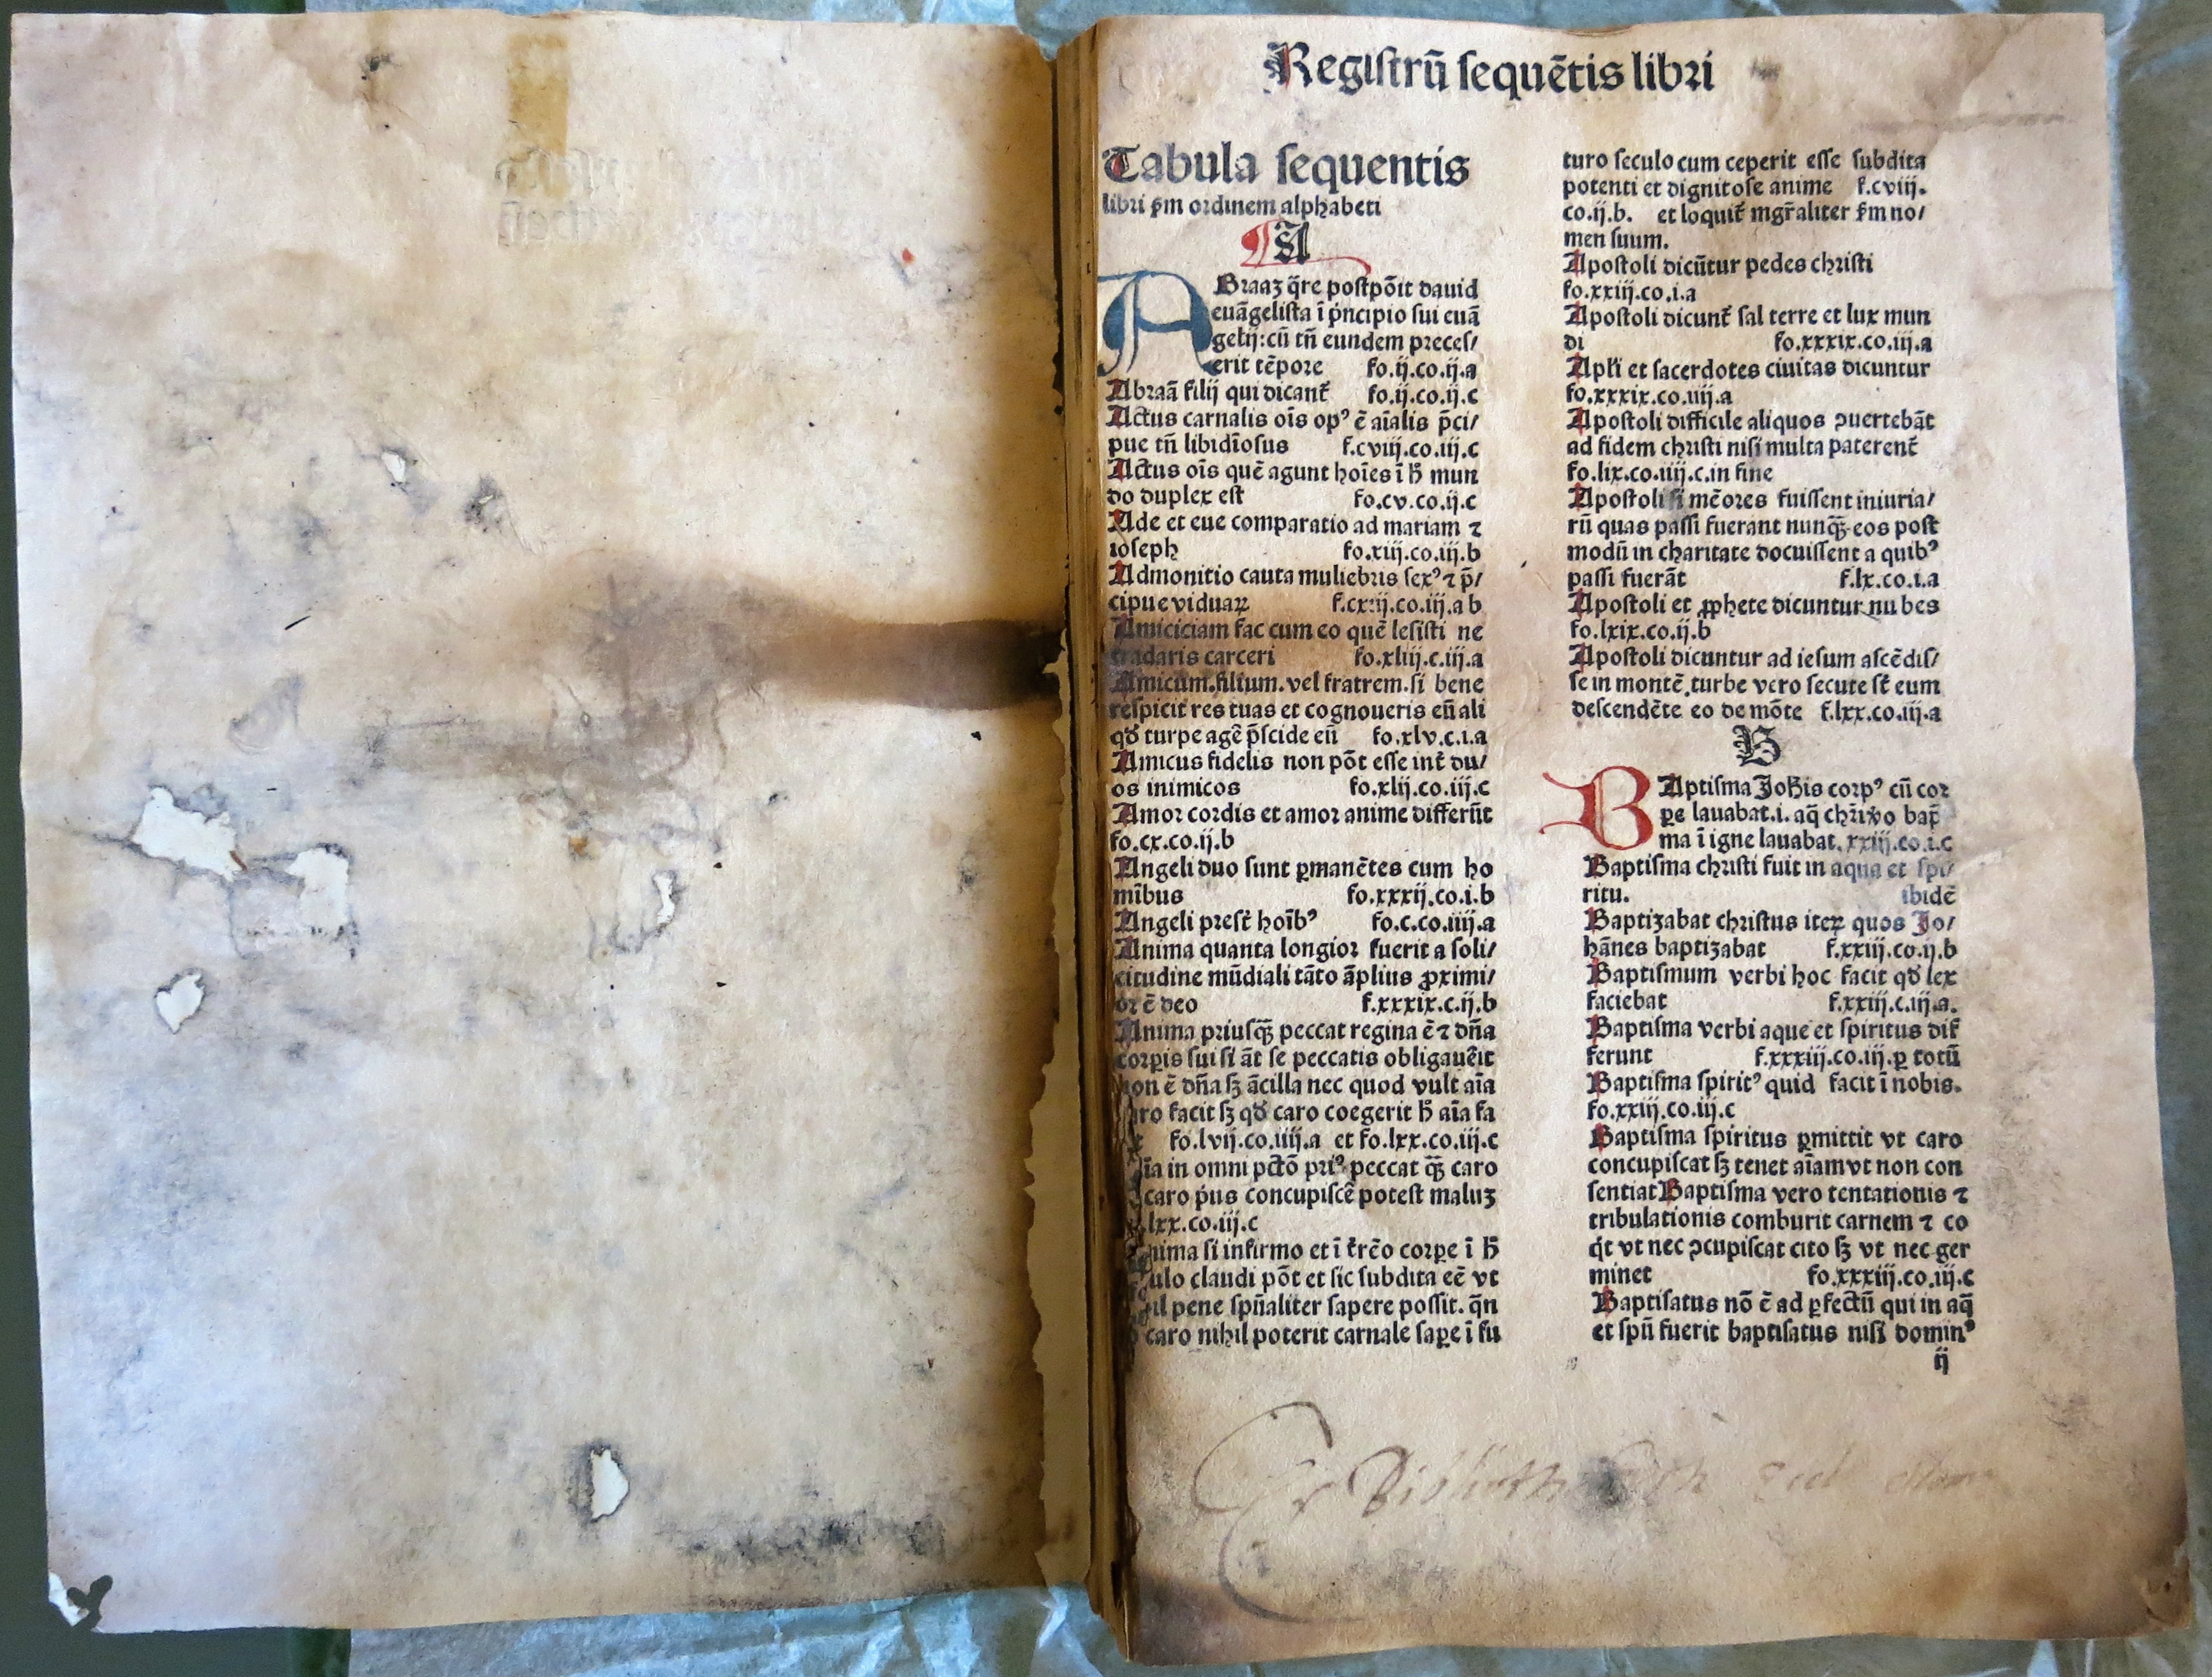 Registrũ sequẽtis libri
Tabula sequentis
libri ẜm ordinem alphabeti
A
ABraaʒ q̃re postpõit dauid
euãgelista ĩ pͥncipio sui euã
gelij:cũ tñ eundem preces/
erit tẽpore fo.ij.co.ij.a
Abraã filij qui dicant̃ fo.ij.co.ij.c
Actus carnalis oĩs opꝰ ẽ aĩalis p̃ci/
pue tñ libidĩosus f.cviij.co.iij.c
Actus oĩs quẽ agunt hoĩes ĩ h̃ mun
do duplex est fo.cv.co.ij.c
Ade et eue comparatio ad mariam ⁊
ioseph fo.xiij.co.iij.b
Admonitio cauta muliebris sexꝰ ⁊ p̃/
cipue viduaꝝ co.iij.a b
Amiciciam fac cum eo quẽ lesisti ne
tradaris carceri fo.xliij.c.iij.a
Amicum.filium.vel fratrem.si bene
respicit res tuas et cognoueris eũ ali
qd̃ turpe agẽ p̃scide eũ fo.xlv.c.i.a
Amicus fidelis non põt esse int̃ du/
os inimicos fo.xlij.co.iij.c
Amor cordis et amor anime differũt
fo.cx.co.ij.b
Angeli duo sunt ꝑmanẽtes cum ho
mĩbus fo.xxxij.co.i.b
Angeli presũt hoĩbꝰ fo.c.co.iiij.a
Anima quanta longior fuerit a soli/
citudine mũdiali tãto ãplius ꝓximi/
or ẽ deo f.xxxix.c.ij.b
Anima priusꝙ̃ peccat regina ẽ ⁊ dña
corꝑis sui si ãt se peccatis obligauẽit
non ẽ dña sꝫ ãcilla nec quod vult aĩa
caro facit sꝫ qd̃ caro coegerit h̃ aĩa fa
fo.lvij.co.iiij.a et fo.lxx.co.iij.c
in omni pctõ priꝰ peccat ꝙ̃ caro
caro pͥus concupiscẽ potest maluʒ
lxx.co.iij.c
Anima si infirmo et ĩ t̃rẽo corꝑe ĩ h̃
claudi põt et sic subdita eẽ vt
pene spũaliter sapere possit. q̃n
caro nihil poterit carnale saꝑe ĩ fu
turo seculo cum ceperit esse subdita
potenti et dignitose anime f.cviij.
co.ij.b. et loquit̃ mgr̃aliter ẜm no/
men suum.
Apostoli dicũtur pedes christi
fo.xxiij.co.i.a
Apostoli dicunt̃ sal terre et lux mun
di fo.xxxix.co.iij.a
Apl̃i et sacerdotes ciuitas dicuntur
fo.xxxix.co.iiij.a
Apostoli difficile aliquos ꝯuertebãt
ad fidem christi nisi multa paterent̃
fo.lix.co.iiij.c.in fine
Apostoli si mẽores fuissent iniuria/
rũ quas passi fuerant nunꝙ̃ eos post
modũ in charitate docuissent a quibꝰ
passi fuerãt f.lx.co.i.a
Apostoli et ꝓphete dicuntur nubes
fo.lxix.co.ij.b
Apostoli dicuntur ad iesum ascẽdis/
se in montẽ turbe vero secute st̃ eum
descendẽte eo de mõte f.lxx.co.iij.a
B
BAptisma Joh̃is corpꝰ cũ cor
ꝑe lauabat.i. aq̃ bap̃
ma ĩ igne lauabat. xxiij.co.i.c
Baptisma christi fuit in aqua et spi/
ritu. ibidẽ
Baptizabat christus iteꝝ quos Jo/
hãnes baptizabat f.xxiij.co.ij.b
Baptismum verbi hoc facit qd̃ lex
faciebat f.xxiij.c.iij.a.
Baptisma verbi aque et spiritus dif
ferunt f.xxxiij.co.iij.ꝑ totũ
Baptisma spiritꝰ quid facit ĩ nobis.
fo.xxiij.co.iij.c
Baptisma spiritus ꝑmittit vt caro
concupiscat sꝫ tenet aĩam vt non con
sentiat Baptisma vero tentationis ⁊
tribulationis comburit carnem ⁊ co
q̇t vt nec ꝯcupiscat cito sꝫ vt nec ger
minet fo.xxxiij.co.iij.c
Baptisatus nõ ẽ ad ꝑfectũ qui in aq̃
et spũ fuerit baptisatus nisi dominꝰ
ij
Ex Biblioth